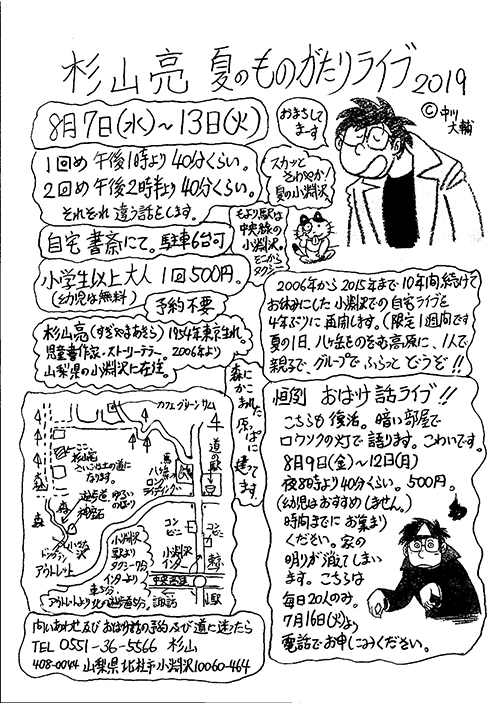 杉山亮 夏のものがたりライブ2019
©中川大輔
8月7日(水)~13日(火)
おまちしてます
1回め 午後1時より40分くらい。
2回め 午後2時半より40分くらい。
それぞれ違う話をします。
スカッとさわやか!
夏の小淵沢
もより駅は
中央線の
小淵沢。
そこから
タクシー
自宅書斎にて。駐車6台可
小学生以上大人 1回500円。
(幼児は無料)
予約不要
杉山亮(すぎやまあきら)1954年東京生れ。
児童書作家・ストーリーテラー。2006年より
山梨県の小淵沢に在住。
2006年から2015年まで10年間続けて
お休みにした小淵沢での自宅ライブを
4年ぶりに再開します。(限定1週間です
夏の1日、八ヶ岳をのぞむ高原に、1人で
親子で、グループでふらっとどうぞ!!
森にかこまれた原っぱに建ってます。
カフェグリーンリム
道の駅
コンビニ
コンビニ
小淵沢インター
中央高速
アウトレット
森
小淵沢
駅より
タクシー7分
インターより
車5分
アウトレットより
諏訪
恒例 おばけ話ライブ!!
こちらも復活。暗い部屋で
ロウソクの灯で語ります。こわいです。
8月9日(金)~12日(月)
夜8時より40分くらい。500円。
(幼児はおすすめしません。)
時間までにお集まり
ください。家の
明りが消えてしまい
ます。こちらは
毎日20人のみ。
7月16日(火)より
電話でお申しこみください。
問いあわせ及びおばけ話の予約及び道に迷ったら
TEL 0551-36-5566 杉山
408-0044 山梨県北杜市小淵沢10060-464